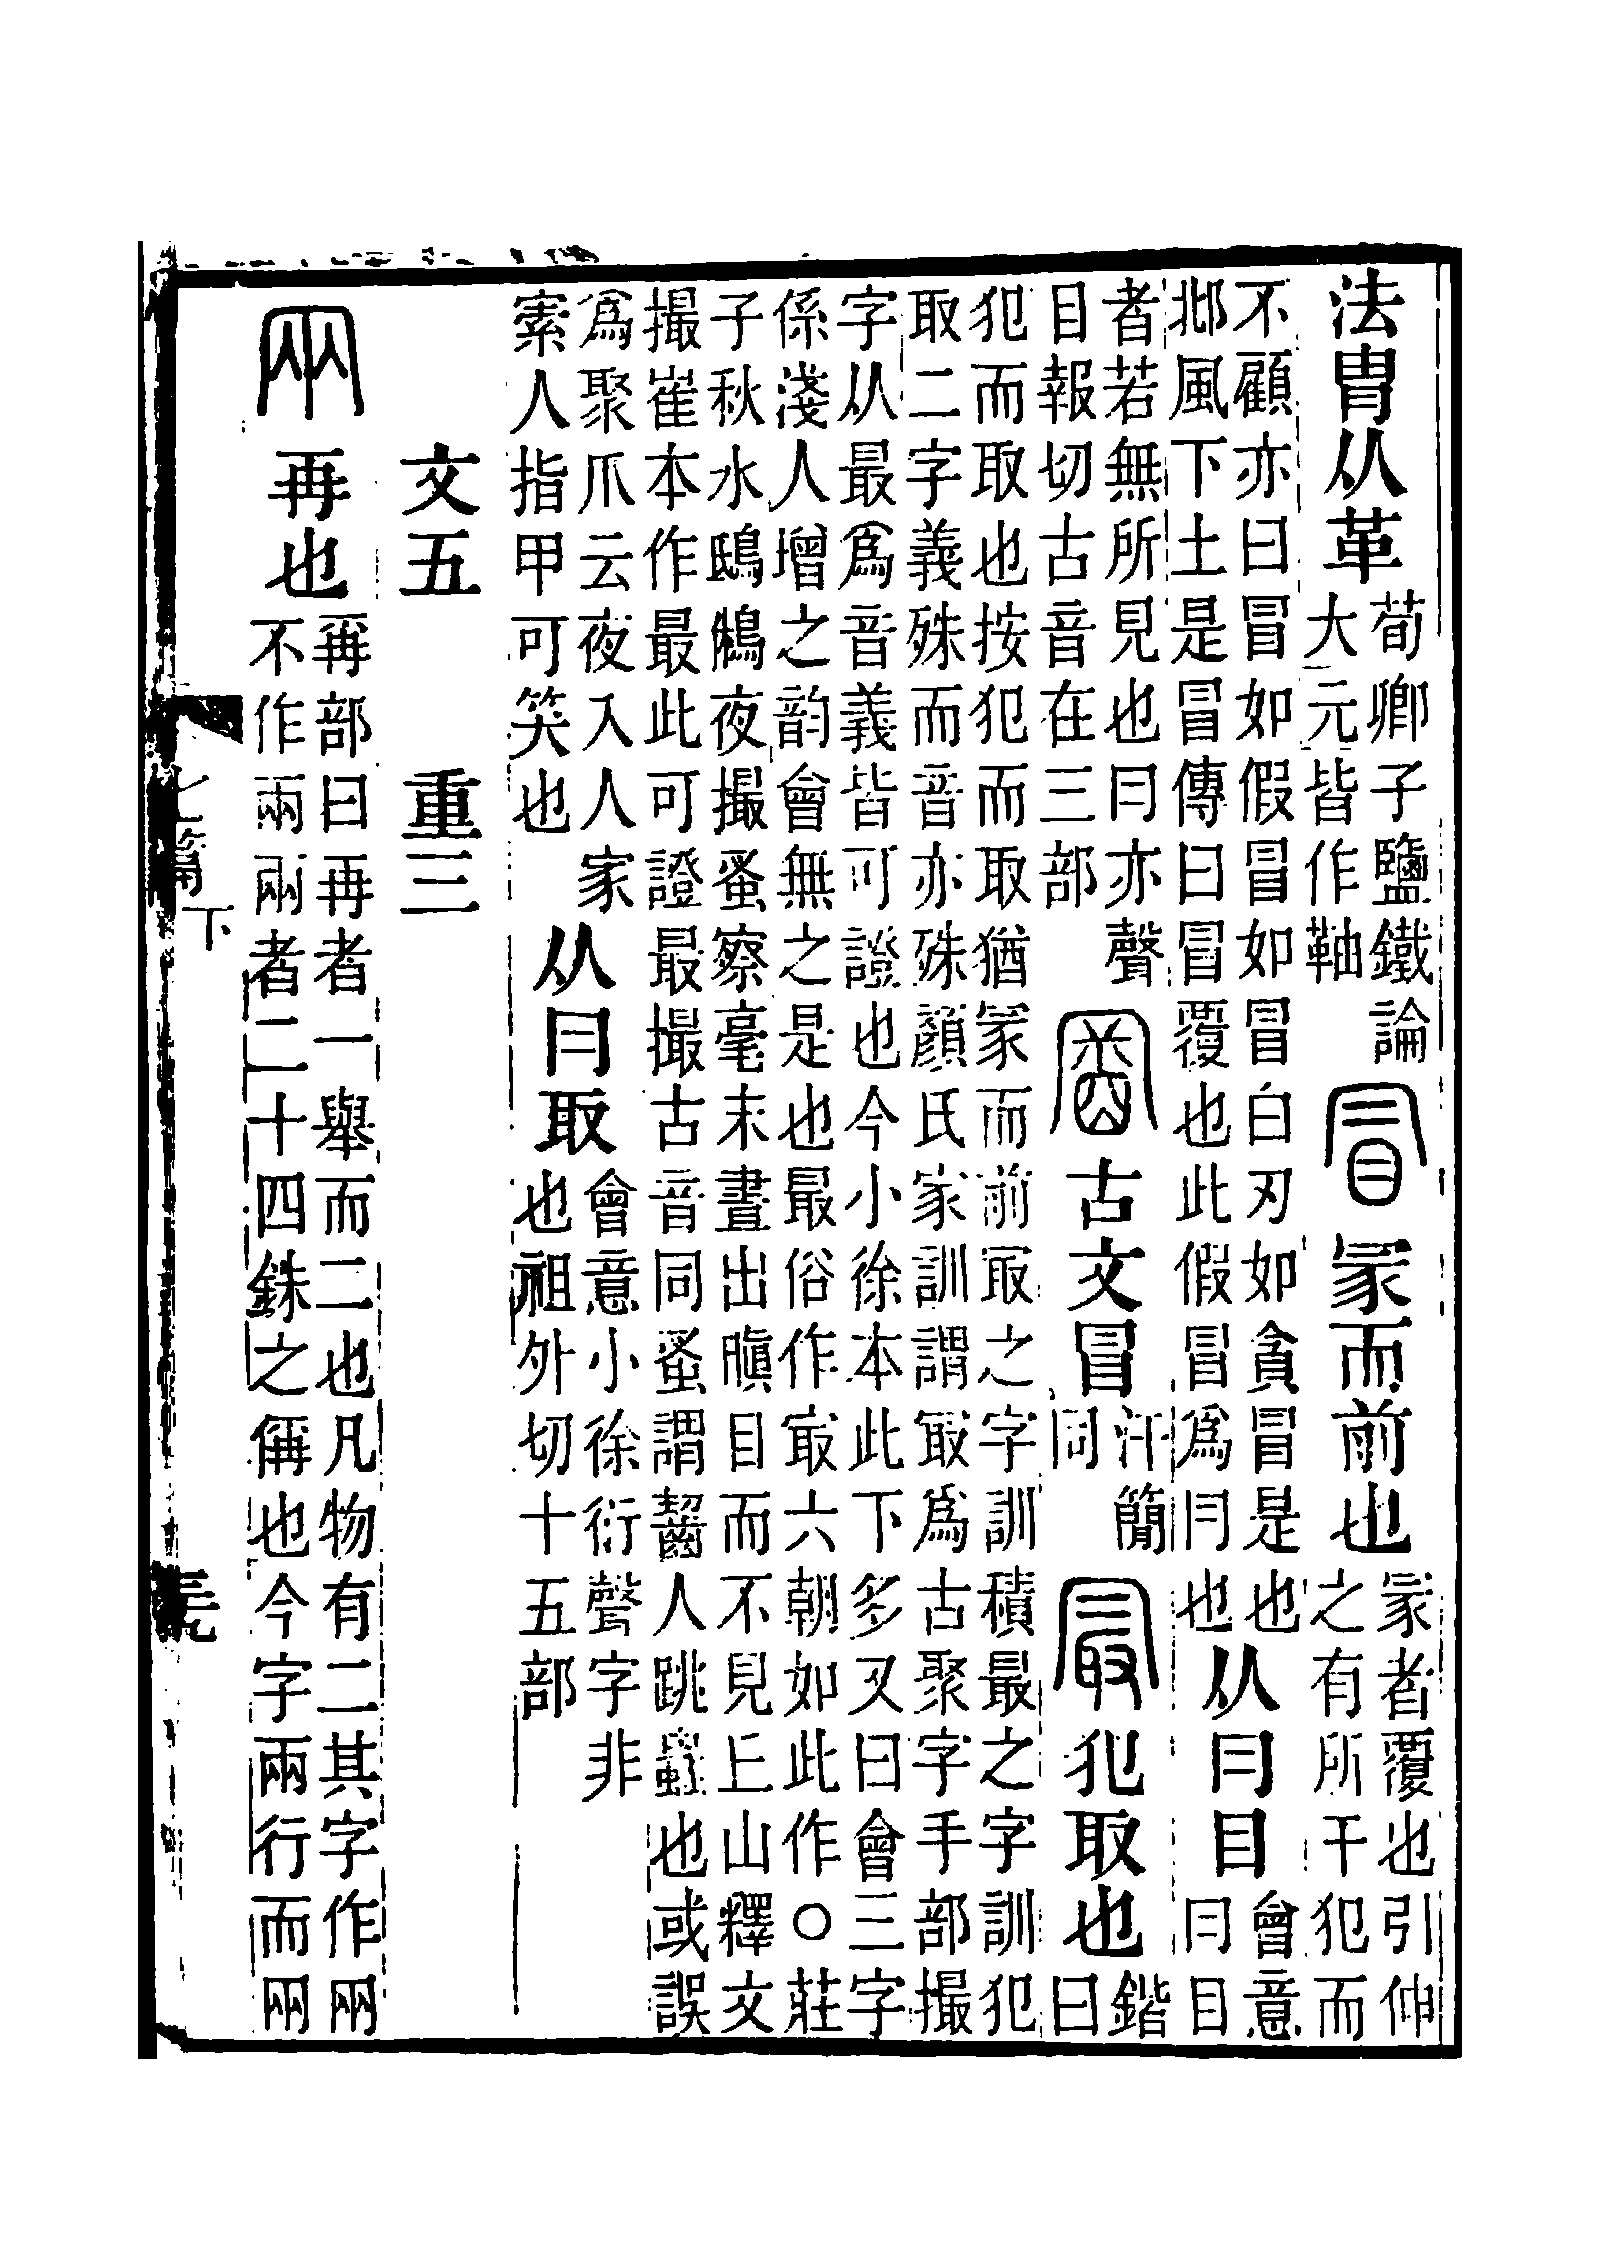 法冑从革荀卿子鹽鐵論大元皆作䩜冒冡而前也冡者覆也引伸之有所干犯而
不顧亦曰冒如假冒如冒白刃如貪冒是也邶風下土是冒傳曰冒冒覆也此假冒爲冃也从冃目會意冃目
者若無所見也冃亦聲目報切古音在三部古文冒汗簡同最犯取也鍇曰
犯而取也按犯而取猶冡而前冣之字訓積最之字訓犯取二字義殊而音亦殊顏氏家訓謂冣爲古聚字手部撮
字从最爲音義皆可證也今小徐本此下多又曰會三字係淺人增之韵會無之是也最俗作㝡六朝如此作○莊
子秋水鴟鵂夜撮蚤察毫末晝出瞋目而不見丘山釋文撮崔本作最此可證最撮古音同蚤謂齧人跳蟲也或誤
爲聚爪云夜入人家索人指甲可笑也从冃取會意小徐衍聲字非也祖外切十五部
文五　重三
㒳再也冓部曰再者一舉而二也凡物有二其字作㒳不作兩兩者二十四銖之偁也今字兩行而㒳
七篇下